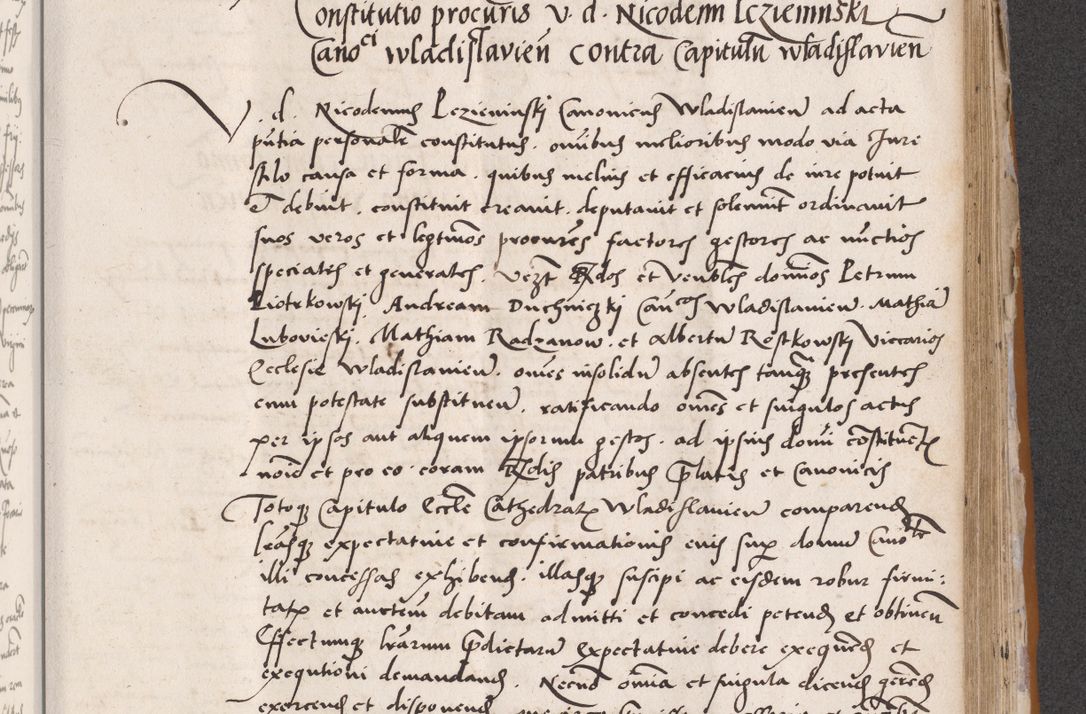 Constitutio procuris v. d. Nicodemi lczieminski
Canoci wladislavien contra Capitulu wladislavien
V. d. Nicodemus Lczieninskj Canonicus Wladislavien ad acta
pñtia personale constitutus. omnibus melioribus modo via Jure
stilo causa et forma. quibus melius et efficacius de iure potuit
et debuit. constituit creauit. deputauit et solemnit ordinauit
suos veros et legtimos procures factores gestores ac nuctios
speciales et generales. vezt Rdos et Venbles dominos Petrum
Piotrkowskj. Andream Duchniczkj Canocos Wladislavien. Mathia
Lubovieskj. Mathiam Radzanow. et Albertu Rostkowskj Viccarios
Ecclesie Wladislavien. omes insolidu absentes tanqz presentes
cum potestate substituen. ratificando omes et singulos actus
per ipsos aut aliquem ipsorum gestos. ad ipsius domi constituentis
noie et pro eo. coram Rdis patribus Prelatis et Canonicis
Totoqz Capitulo Eccle Cathedralis Wladislavien comparend
lrasqz expectative et confirmationis eius sup domu Canole
illi concessas exhibend. illasqz suscipi ac eisdem robur firmi:
tatis et auctem debitam admitti et concedi petend et obtinen
Effectumqz lrarum predictaru Expectative debere exequend et
exeqution demandand. Necno omia et singula dicend gerend
exercend et disponend